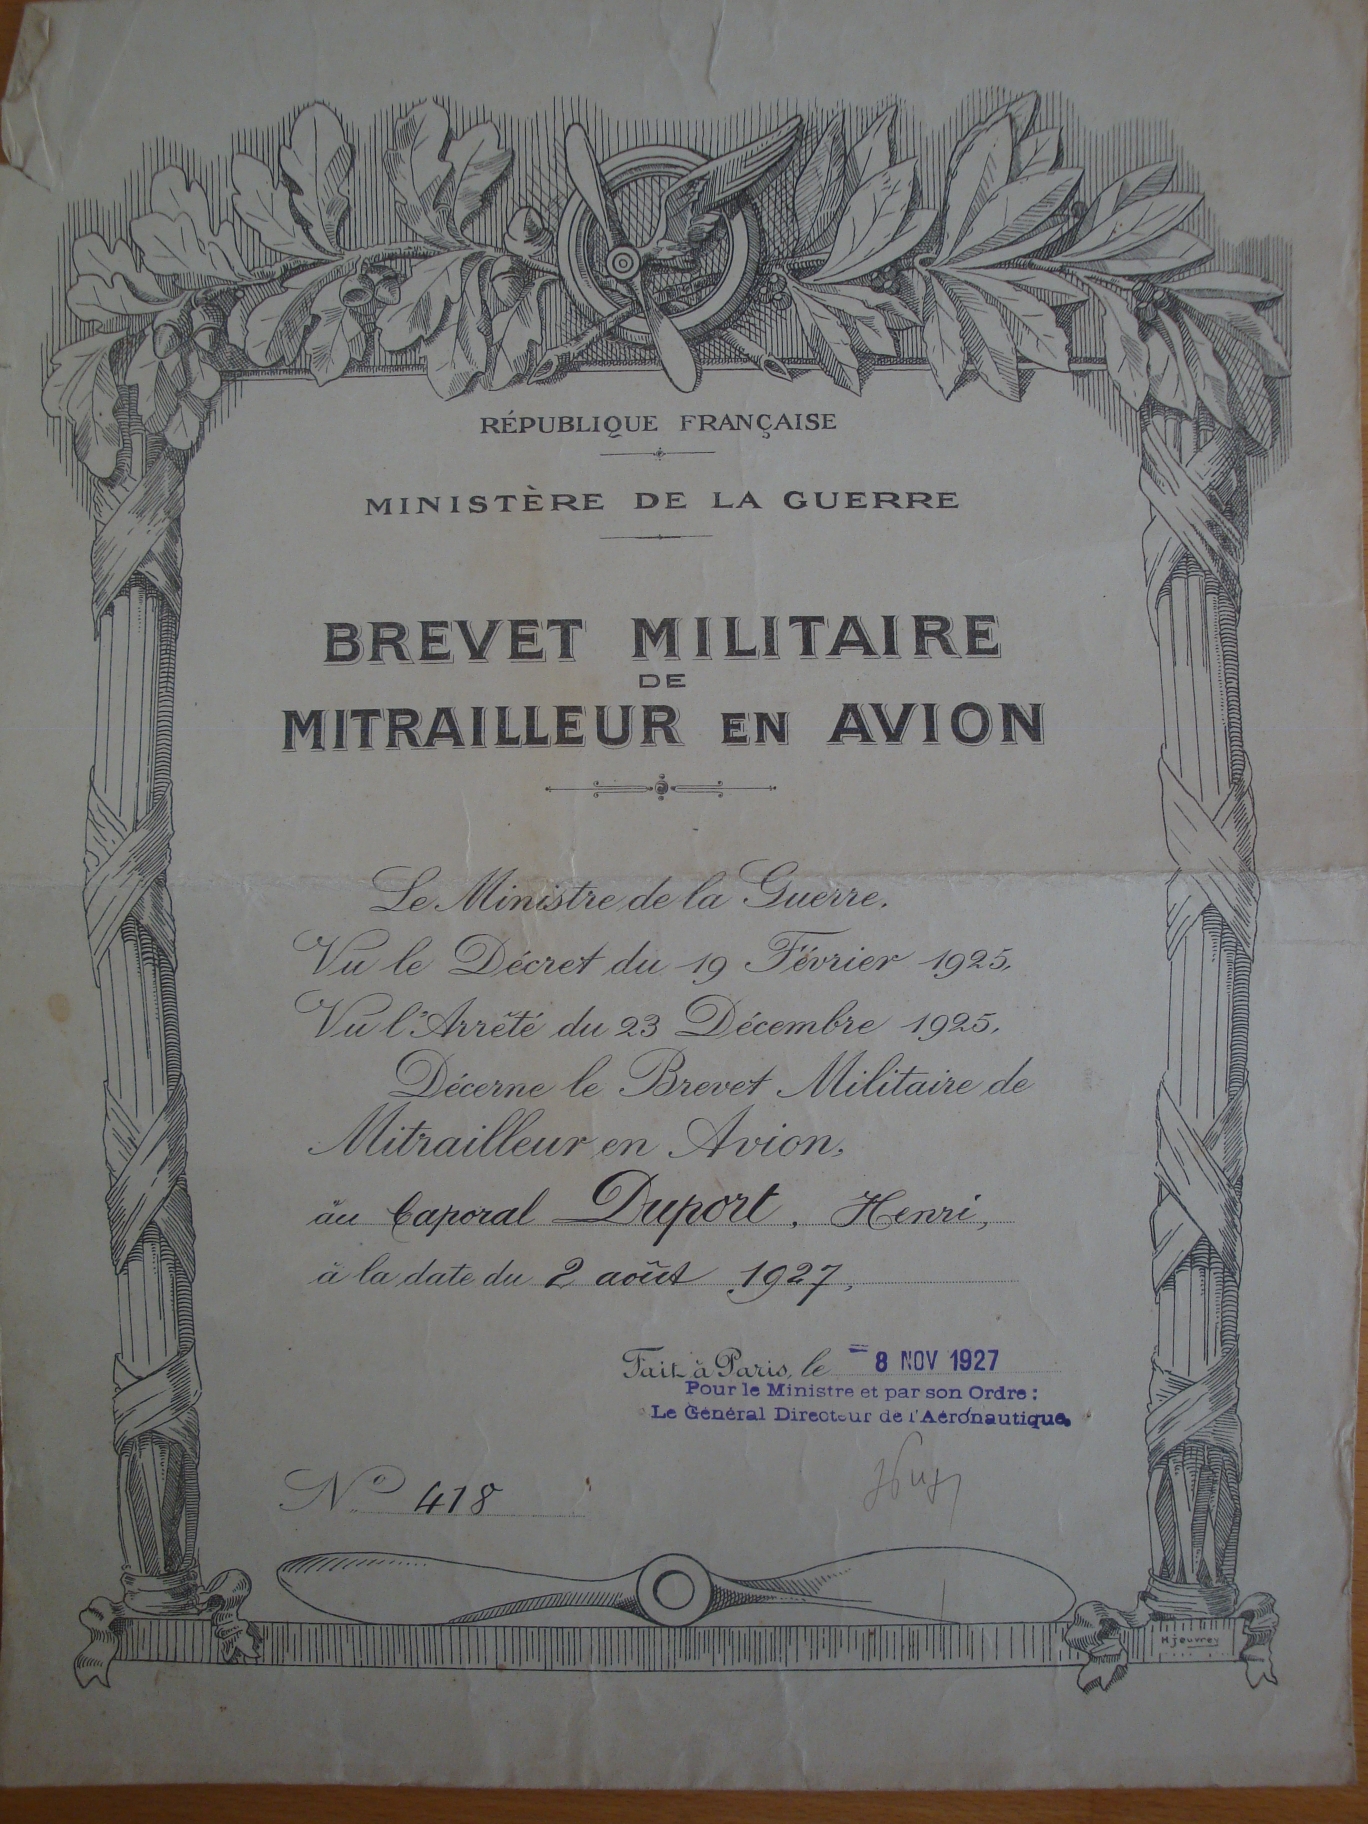 RÉPUBLIQUE FRANÇAISE
MINISTÈRE DE LA GUERRE
BREVET MILITAIRE
DE
MITRAILLEUR EN AVION
Le Ministre de la Guerre,
Vu le Décret du 19 Février 1925,
Vu l'Arrêté du 23 Décembre 1925,
Décerne le Brevet Militaire de
Mitrailleur en Avion,
au Caporal Duport, Henri,
à la date du 2 août 1927,
Fait à Paris, le - 8 NOV 1927
Pour le Ministre et par son Ordre :
Le Général Directeur de l'Aéronautique,
No 418
H Jouvrey